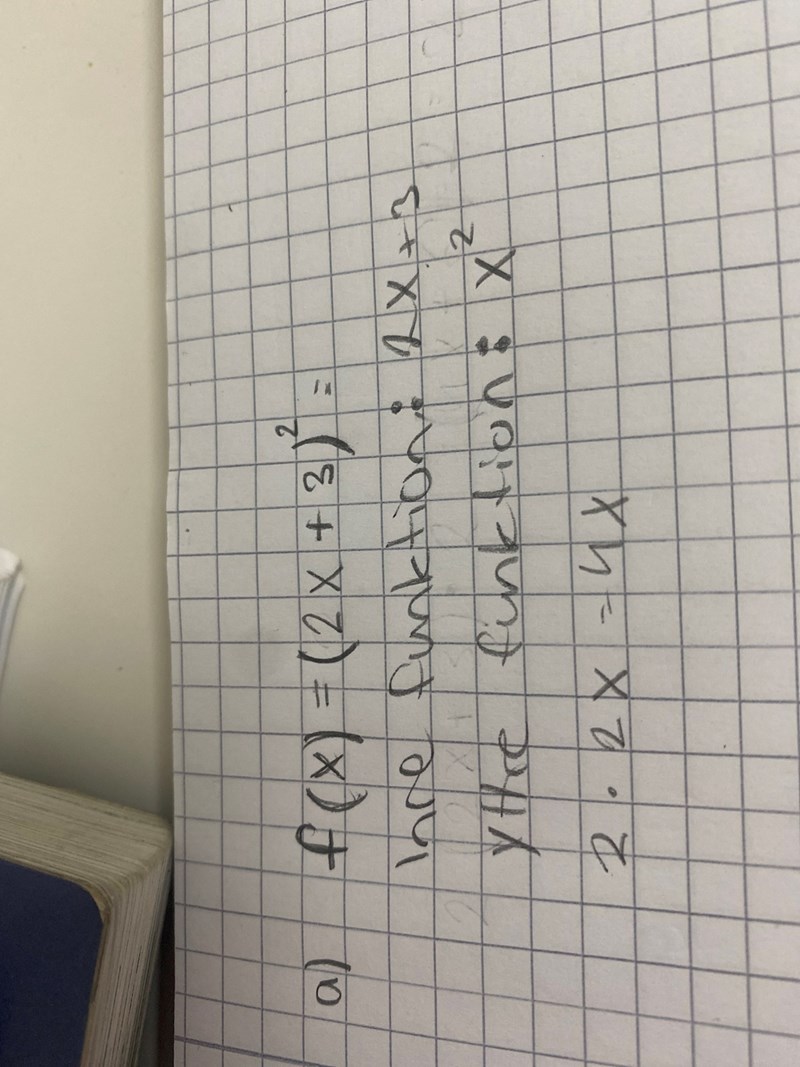 a) f(x) = (2x + 3)² =
Inre funktion: 2x + 3
yttre funktion: x²
2 · 2x = 4x